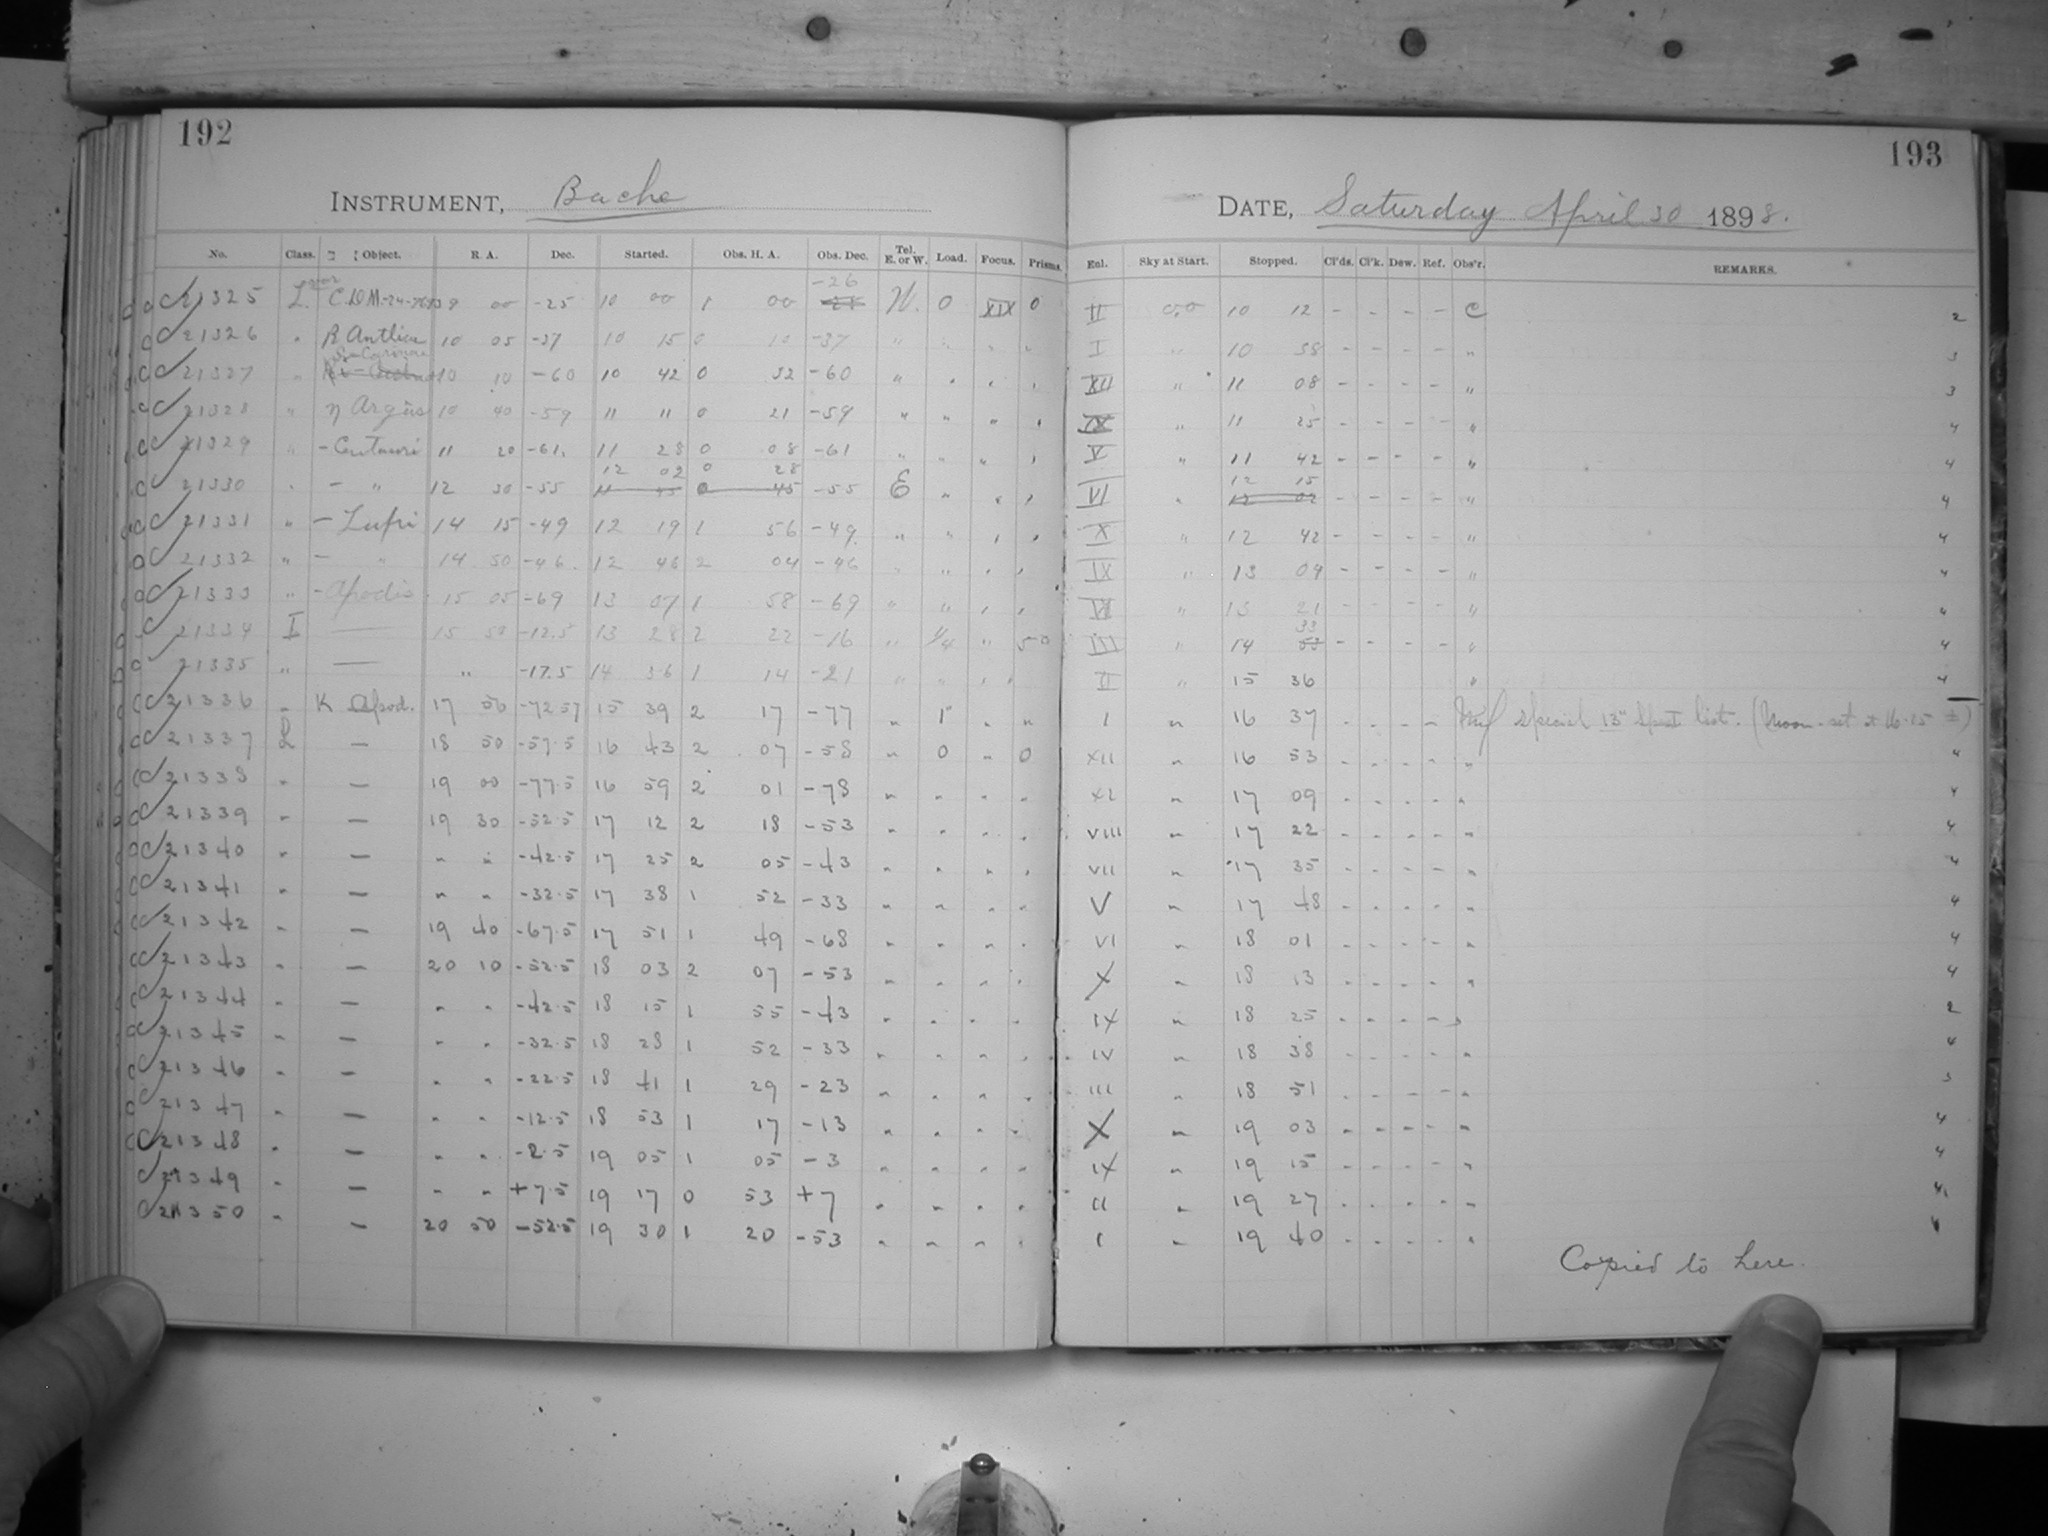 192
193
INSTRUMENT, Bache
DATE, Saturday April 30 1898.
No. Class. Object. R. A. Dec. Started. Obs. H. A. Obs. Dec. Tel. E. or W. Load. Focus. Prisms. Enl. Sky at Start. Stopped. Cl'ds. Cl'k. Dew. Ref. Obs'r. REMARKS.
-26
21325 L. C.D.M.-24 9 00 -25 10 00 1 00 W. 0 XIX 0 II 0,0 10 12 - - - - C 2
21326 " R Antliae 10 05 -37 10 15 0 10 -37 " " " " I " 10 38 - - - - " 3
S-Carinae
21327 " 10 10 -60 10 42 0 32 -60 " " " " XII " 11 08 - - - - " 3
21328 " η Argûs 10 40 -59 11 11 0 21 -59 " " " " IX " 11 25 - - - - " 4
21329 " - Centauri 11 20 -61 11 28 0 08 -61 " " " " V " 11 42 - - - - " 4
12 02 0 28 12 15
21330 " - " 12 30 -55 11 45 0 45 -55 E " " " VI " 12 02 - - - - " 4
21331 " - Lupi 14 15 -49 12 19 1 56 -49 " " " " X " 12 42 - - - - " 4
21332 " - " 14 50 -46 12 46 2 04 -46 " " " " IX " 13 09 - - - - " 4
21333 " - Apodis 15 05 -69 13 07 1 58 -69 " " " " " 13 21 - - - - " 4
33
21334 I — 15 50 -12.5 13 28 2 22 -16 " 1/4 " 50 III " 14 53 - - - - " 4
21335 " — " -17.5 14 36 1 14 -21 " " " " II " 15 36 " 4
21336 " K Apod. 17 50 -72 57 15 39 2 17 -77 " 1" " " I " 16 37 - - - - special 13" Spect. list. (Moon-set at 16.15 ±)
21337 L — 18 50 -57.5 16 43 2 07 -58 " 0 " 0 XII " 16 53 - - - - " 4
21338 " — 19 00 -77.5 16 59 2 01 -78 " " " " XI " 17 09 - - - - " 4
21339 " — 19 30 -52.5 17 12 2 18 -53 " " " " VIII " 17 22 - - - - " 4
21340 " — " " -42.5 17 25 2 05 -43 " " " " VII " 17 35 - - - - " 4
21341 " — " " -32.5 17 38 1 52 -33 " " " " V " 17 48 - - - - " 4
21342 " — 19 40 -67.5 17 51 1 49 -68 " " " " VI " 18 01 - - - - " 4
21343 " — 20 10 -52.5 18 03 2 07 -53 " " " " X " 18 13 - - - - " 4
21344 " — " " -42.5 18 15 1 55 -43 " " " " IX " 18 25 - - - - " 2
21345 " — " " -32.5 18 28 1 52 -33 " " " " IV " 18 38 - - - - " 4
21346 " — " " -22.5 18 41 1 29 -23 " " " " III " 18 51 - - - - " 3
21347 " — " " -12.5 18 53 1 17 -13 " " " " X " 19 03 - - - - " 4
21348 " — " " -2.5 19 05 1 05 -3 " " " " IX " 19 15 - - - - " 4
21349 " — " " +7.5 19 17 0 53 +7 " " " " II " 19 27 - - - - " 4
21350 " — 20 50 -52.5 19 30 1 20 -53 " " " " I " 19 40 - - - - "
Copied to here.